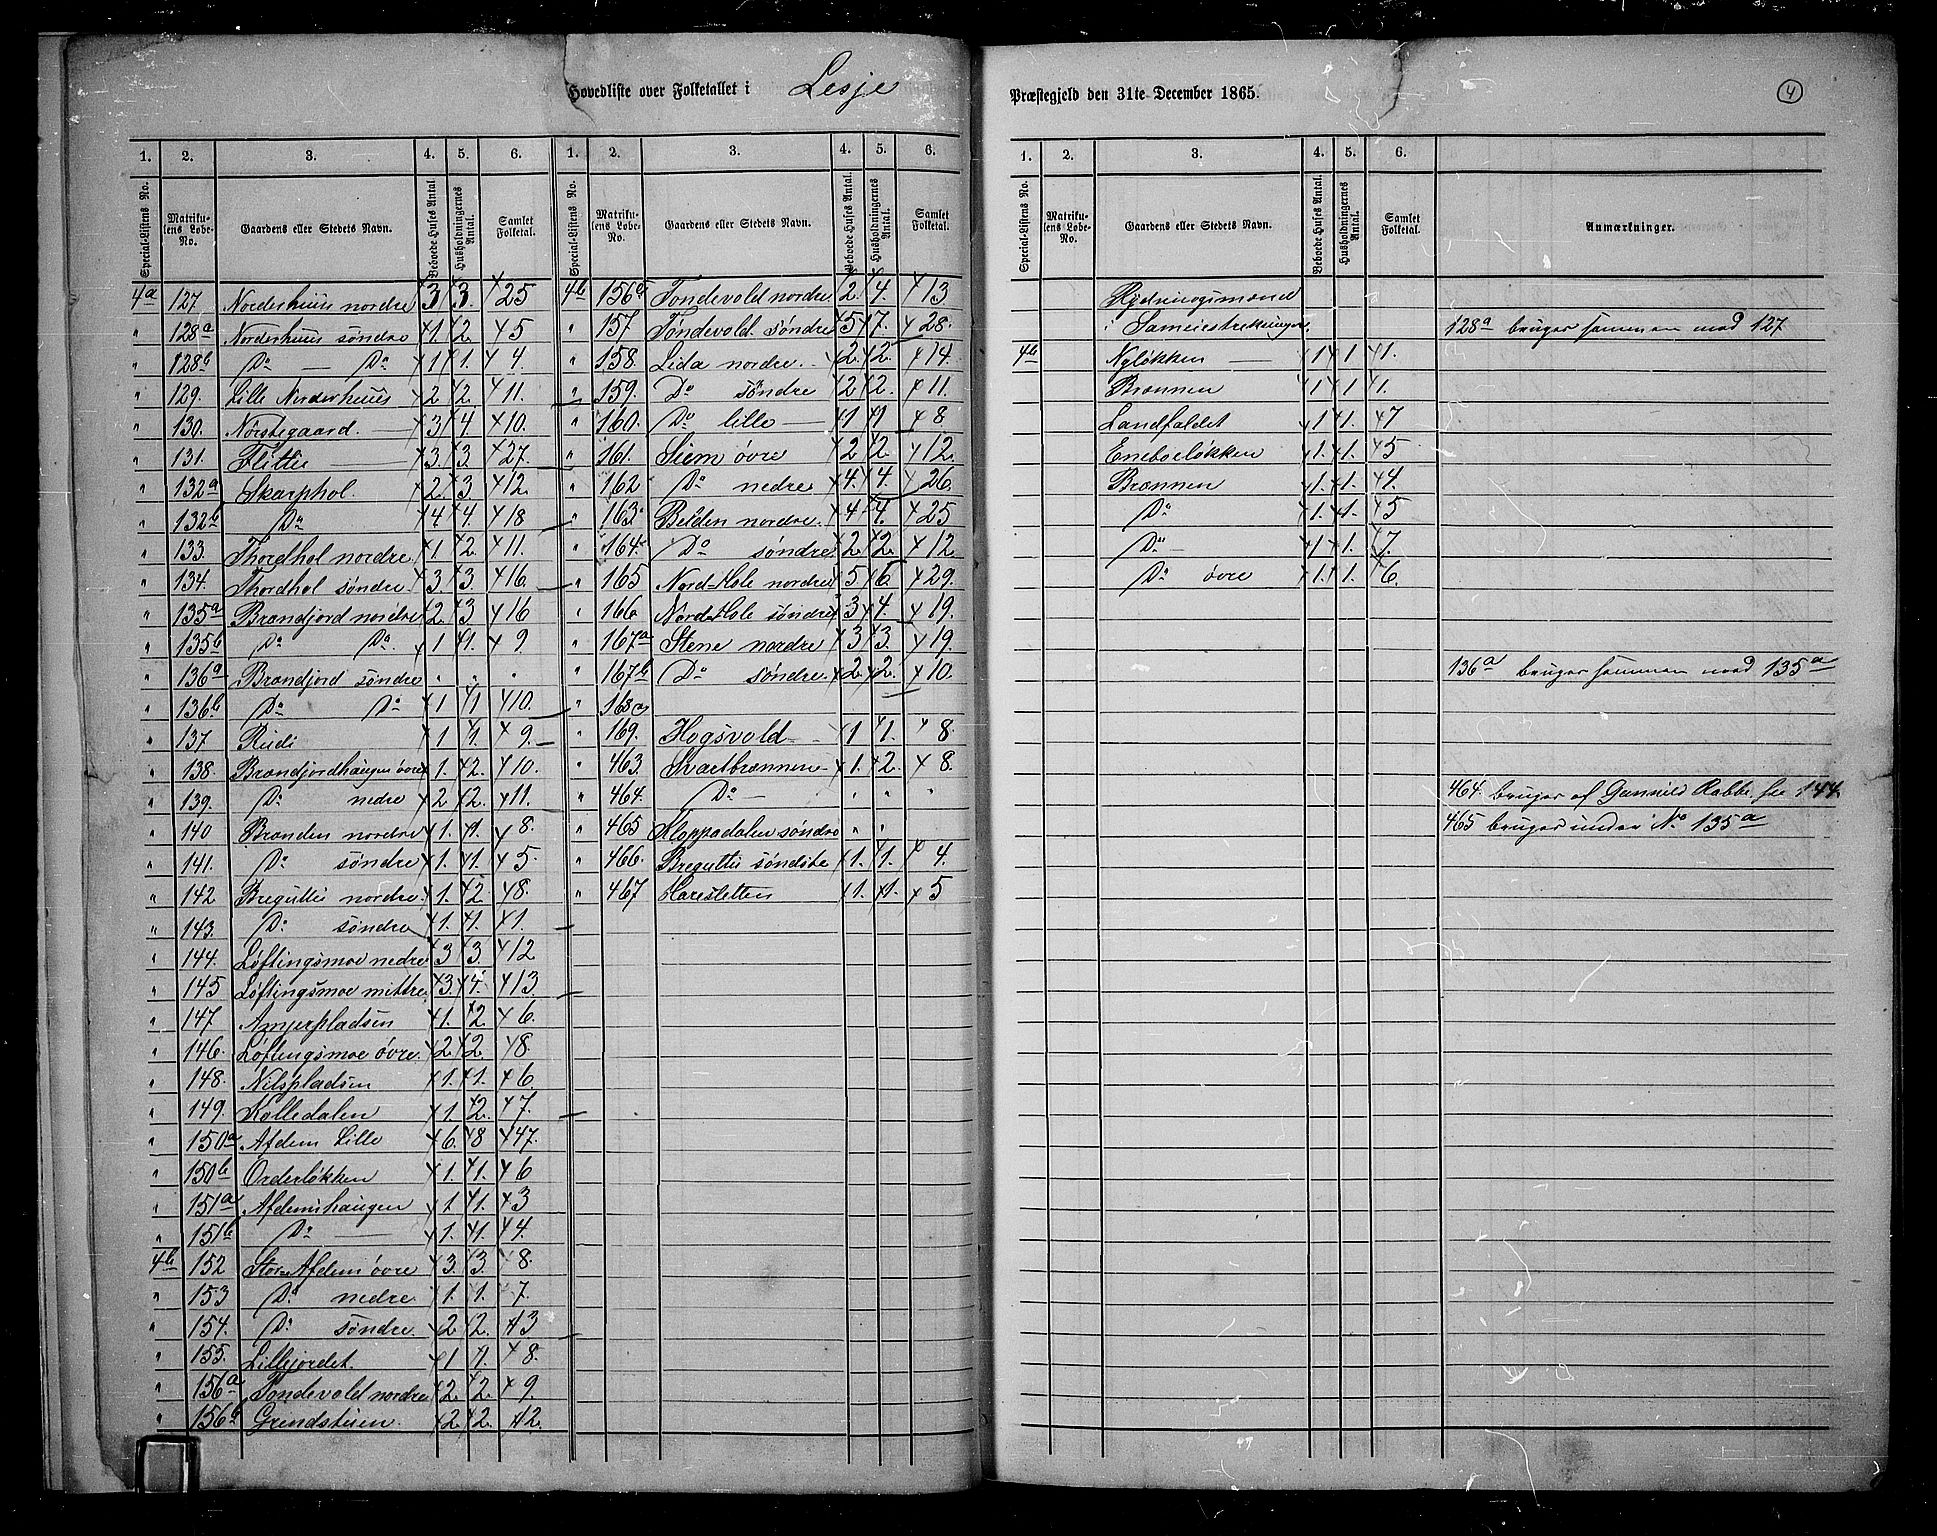 Hovedliste over Folketallet i Lesje Præstegjeld den 31te December 1865.
4
1. 2. 3. 4. 5. 6. 1. 2. 3. 4. 5. 6.
Special-Listens No. Matrikulens Løbe-No. Gaardens eller Stedets Navn. Beboede Huses Antal. Husholdningernes Antal. Samlet Folketal. Special-Listens No. Matrikulens Løbe-No. Gaardens eller Stedets Navn. Beboede Huses Antal. Husholdningernes Antal. Samlet Folketal.
4a 127 Norderhuus nordre 3 3 25
" 128a Norderhuus søndre 1 2 5
" 128b Do — Do 1 1 4
" 129. Lille Norderhuus 2 2 11
" 130. Norstegaard. 3 4 10.
" 131. Flittie 3 3 27.
" 132a Skarphol. 2 3 12
" 132b Do 4 4 18
" 133. Thordhol nordre 1 2 11.
" 134. Thordhol søndre 3 3 16
" 135a Brandjord nordre 2 3 16
" 135b Do Do. 1 1 9
" 136a Brandjord søndre " " "
" 136b Do Do 1 1 10.
" 137 Rudi 1 1 9
" 138. Brandjordhaugen øvre 1 2 10.
" 139. Do nedre 2 2 11.
" 140 Branden nordre 1 1 8.
" 141. Do søndre 1 1 5
" 142 Breguttie nordre 1 2 8.
" 143. Do søndre 1 1 1.
" 144. Løftingsmoe nedre 3 3 12
" 145 Løftingsmoe mittre 3 4 13
" 147. Amjerpladsen 1. 2 6.
" 146. Løftingsmoe øvre 2 2 8.
" 148. Nilspladsen 1. 1. 6
" 149. Kolledalen 1. 2 7.
" 150a Afdem Lille 6. 8 47.
" 150b Orderløkken 1. 1. 6
" 151a Afdemshaugen 1 1 3
" 151b Do 1. 1. 4.
4b 152 Stor-Afdem øvre 3 3 8.
" 153 Do nedre 1. 1. 7.
" 154. Do søndre 2 2 13
" 155. Lillejordet. 1 1 8.
" 156a Tondevold nordre 2 2 9.
" 156b Grendstuen. 2 2 12.
4b 156c Tondevold nordre 2 4. 13
" 157. Tondevold søndre 5 7. 28.
" 158. Lida nordre. 2 2. 14.
" 159. Do søndre 2 2. 11.
" 160. Do lille 1 1 8
" 161. Siem øvre 2 2. 12.
" 162 Do nedre 4. 4. 26.
" 163 Belden nordre 4 4. 25
" 164. Do søndre 2 2. 12
" 165 Nord-Hole nordre 5 6. 29.
" 166 Nord-Hole søndre 3 4. 19.
" 167a Stene nordre 3 3. 19
" 167b Do søndre 2 2. 10.
" 168
" 169. Hogsvold 1 1. 8.
" 463. Svartbrønnen 1. 2. 8.
" 464. Do — " " "
" 465 Kloppadalen søndre " "
" 466. Breguttie søndste 1. 1. 4.
" 467 Harestetten 1. 1. 5
1. 2. 3. 4. 5. 6.
Special-Listens No. Matrikulens Løbe-No. Gaardens eller Stedets Navn. Beboede Huses Antal. Husholdningernes Antal. Samlet Folketal. Anmærkninger.
Rydningsmænd
i Sameiestrekninger 128a bruges sammen med 127
4b Nyløkken — 1 1 1.
Brønnen 1 1 1.
Landfaldet 1 1. 7
Eneboeløkken 1. 1. 5
Brønnen 1. 1. 4.
Do 1. 1. 5
Do — 1 1. 7.
Do øvre 1. 1. 6.
136a bruges sammen med 135a
464. bruges af Gunnild Rabbe see 144
465 bruges under No 135a